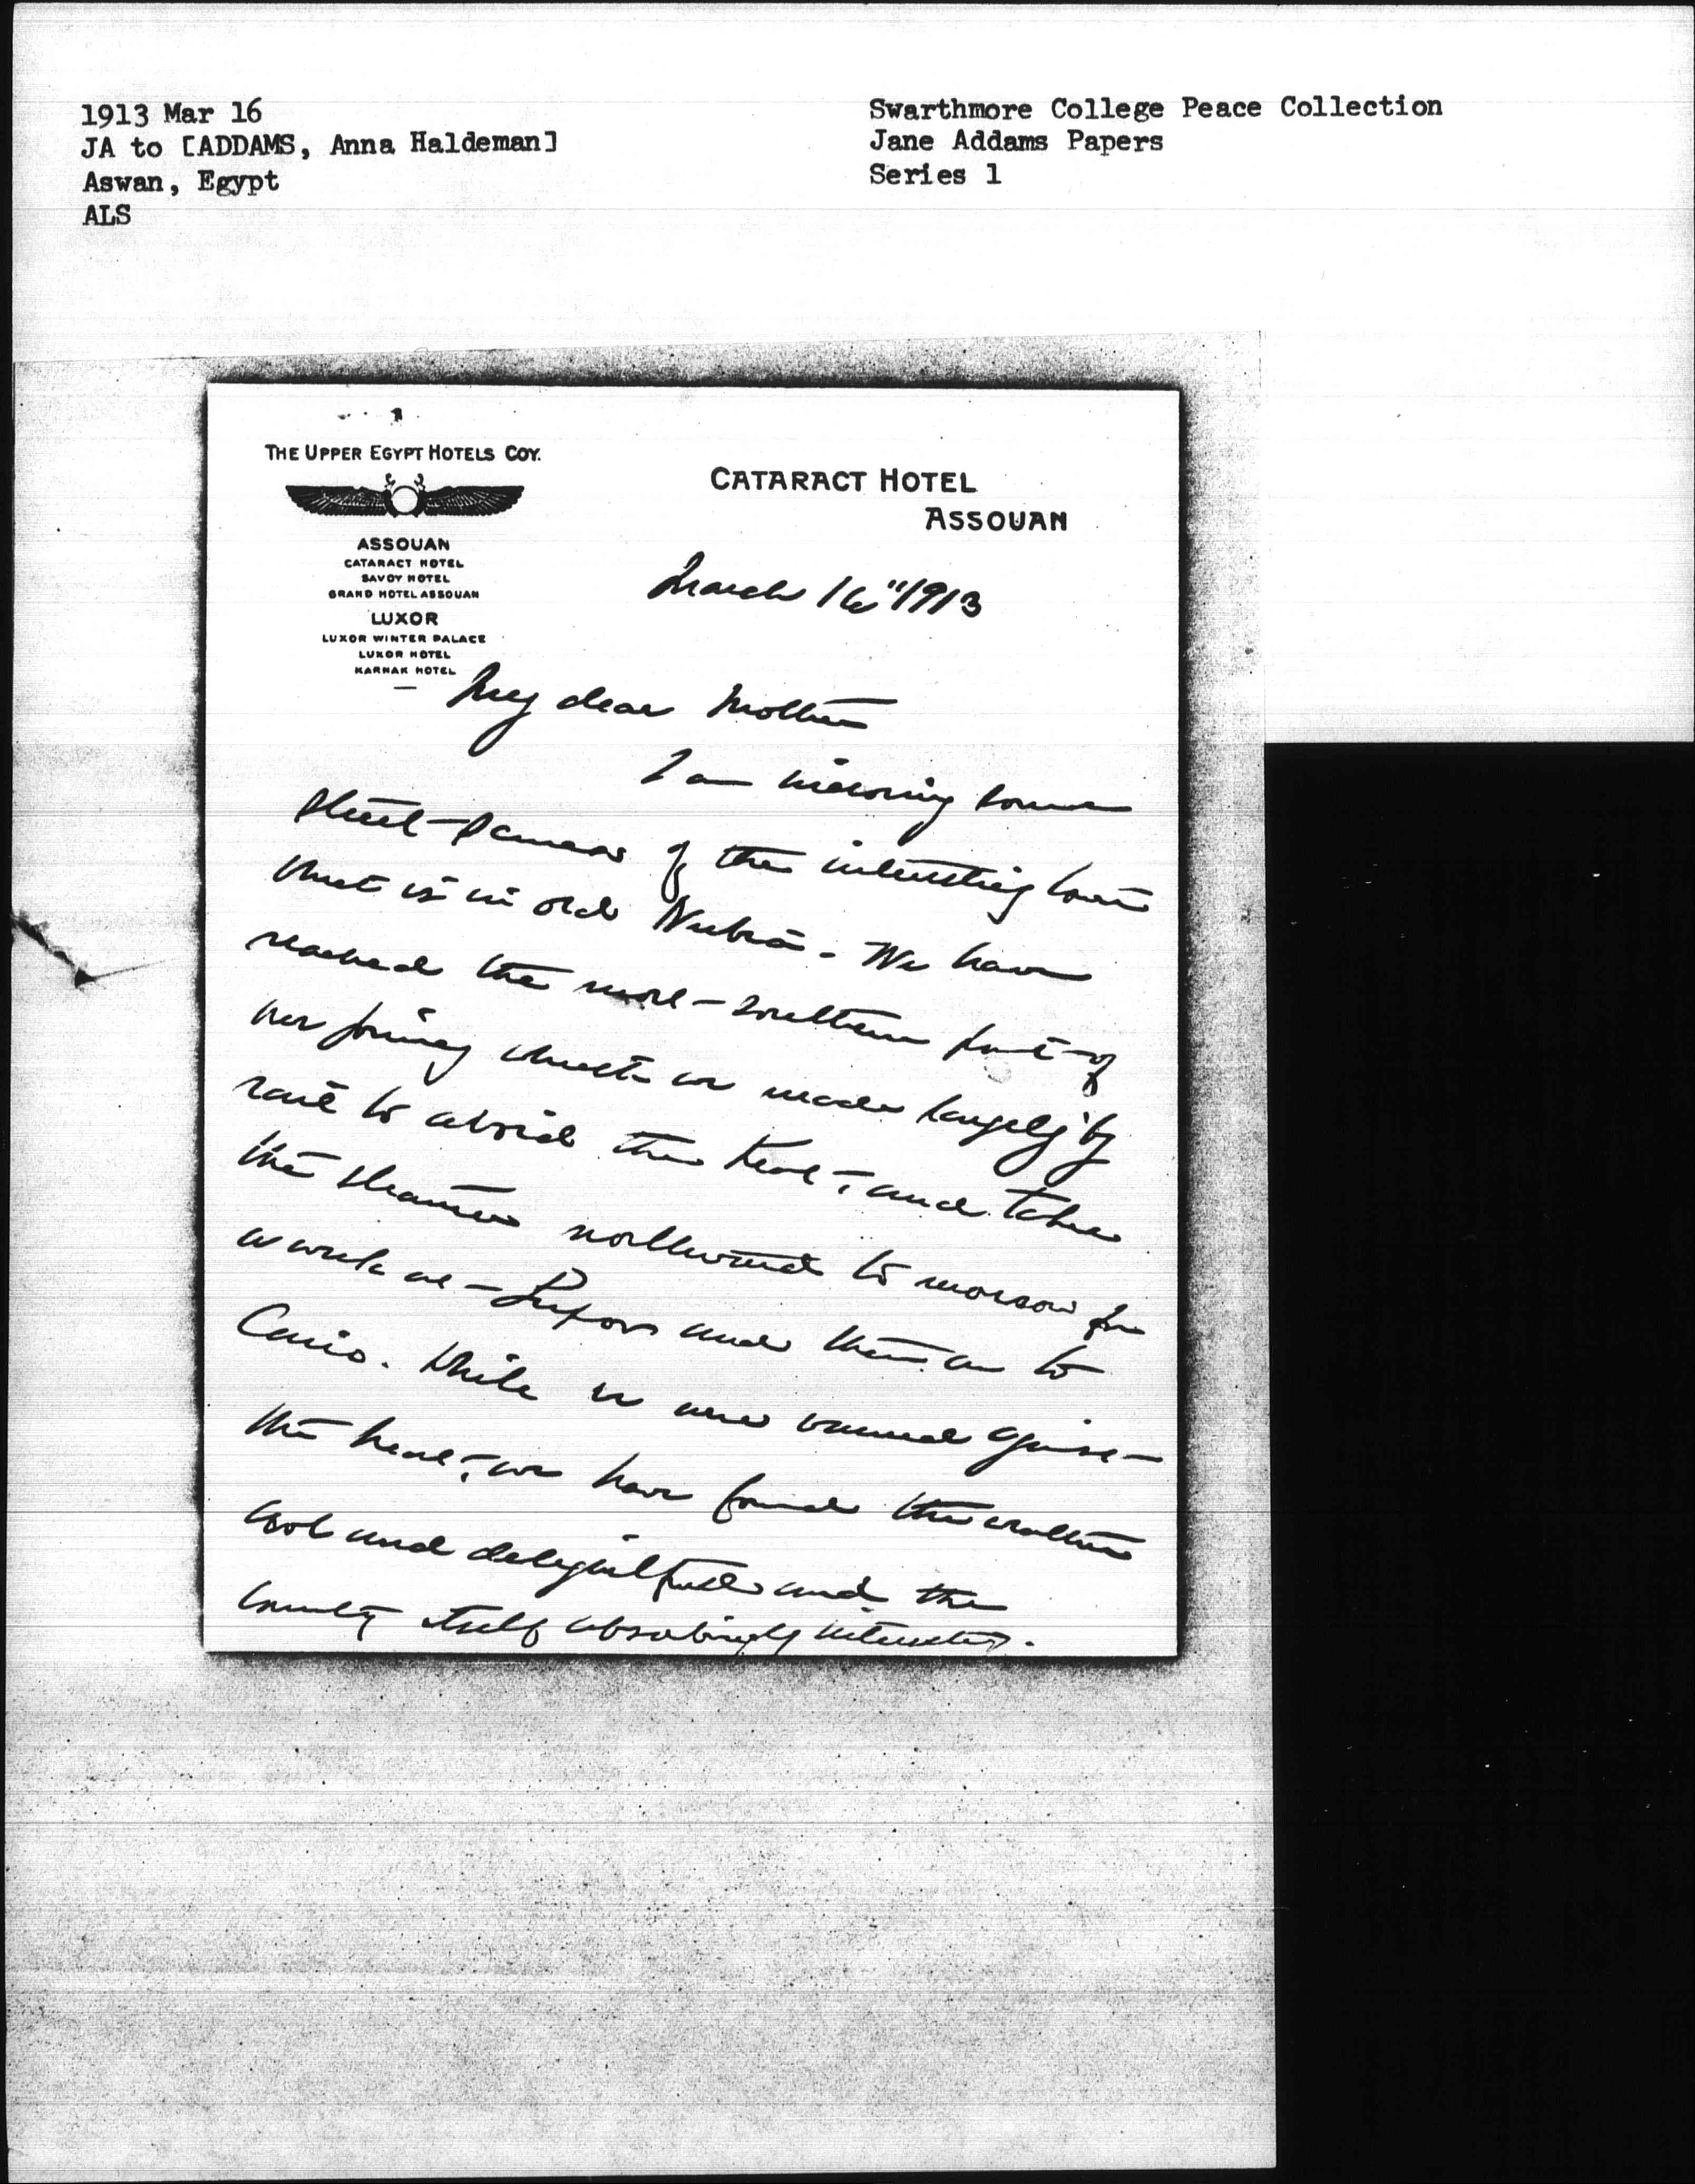 1913 Mar 16
JA to [ADDAMS, Anna Haldeman]
Aswan, Egypt
ALS
Swarthmore College Peace Collection
Jane Addams Papers
Series 1
THE UPPER EGYPT HOTELS COY.
ASSOUAN
CATARACT HOTEL
SAVOY HOTEL
GRAND HOTEL ASSOUAN
LUXOR
LUXOR WINTER PALACE
LUXOR HOTEL
KARNAK HOTEL
CATARACT HOTEL
ASSOUAN
March 16" 1913
My dear Mother
I am some
street scenes of the interesting town
that is in old Nubia. We have
reached the most southern part of
our journey which we made largely by
rail to avoid the heat, and take
the steamer northward to morrow for
a week at Luxor and then on to
Cairo. While we were warned against
the heat, we have found the weather
cool and delightful and the
country itself absorbingly interesting.